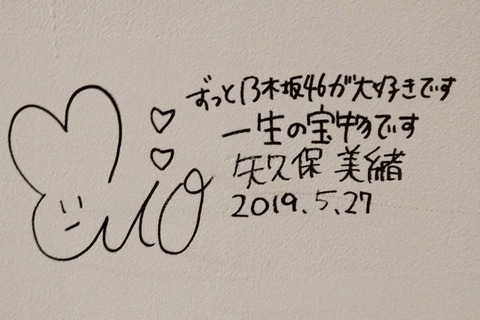 ずっと乃木坂46が大好きです
一生の宝物です
矢久保 美緒
2019.5.27
Mio